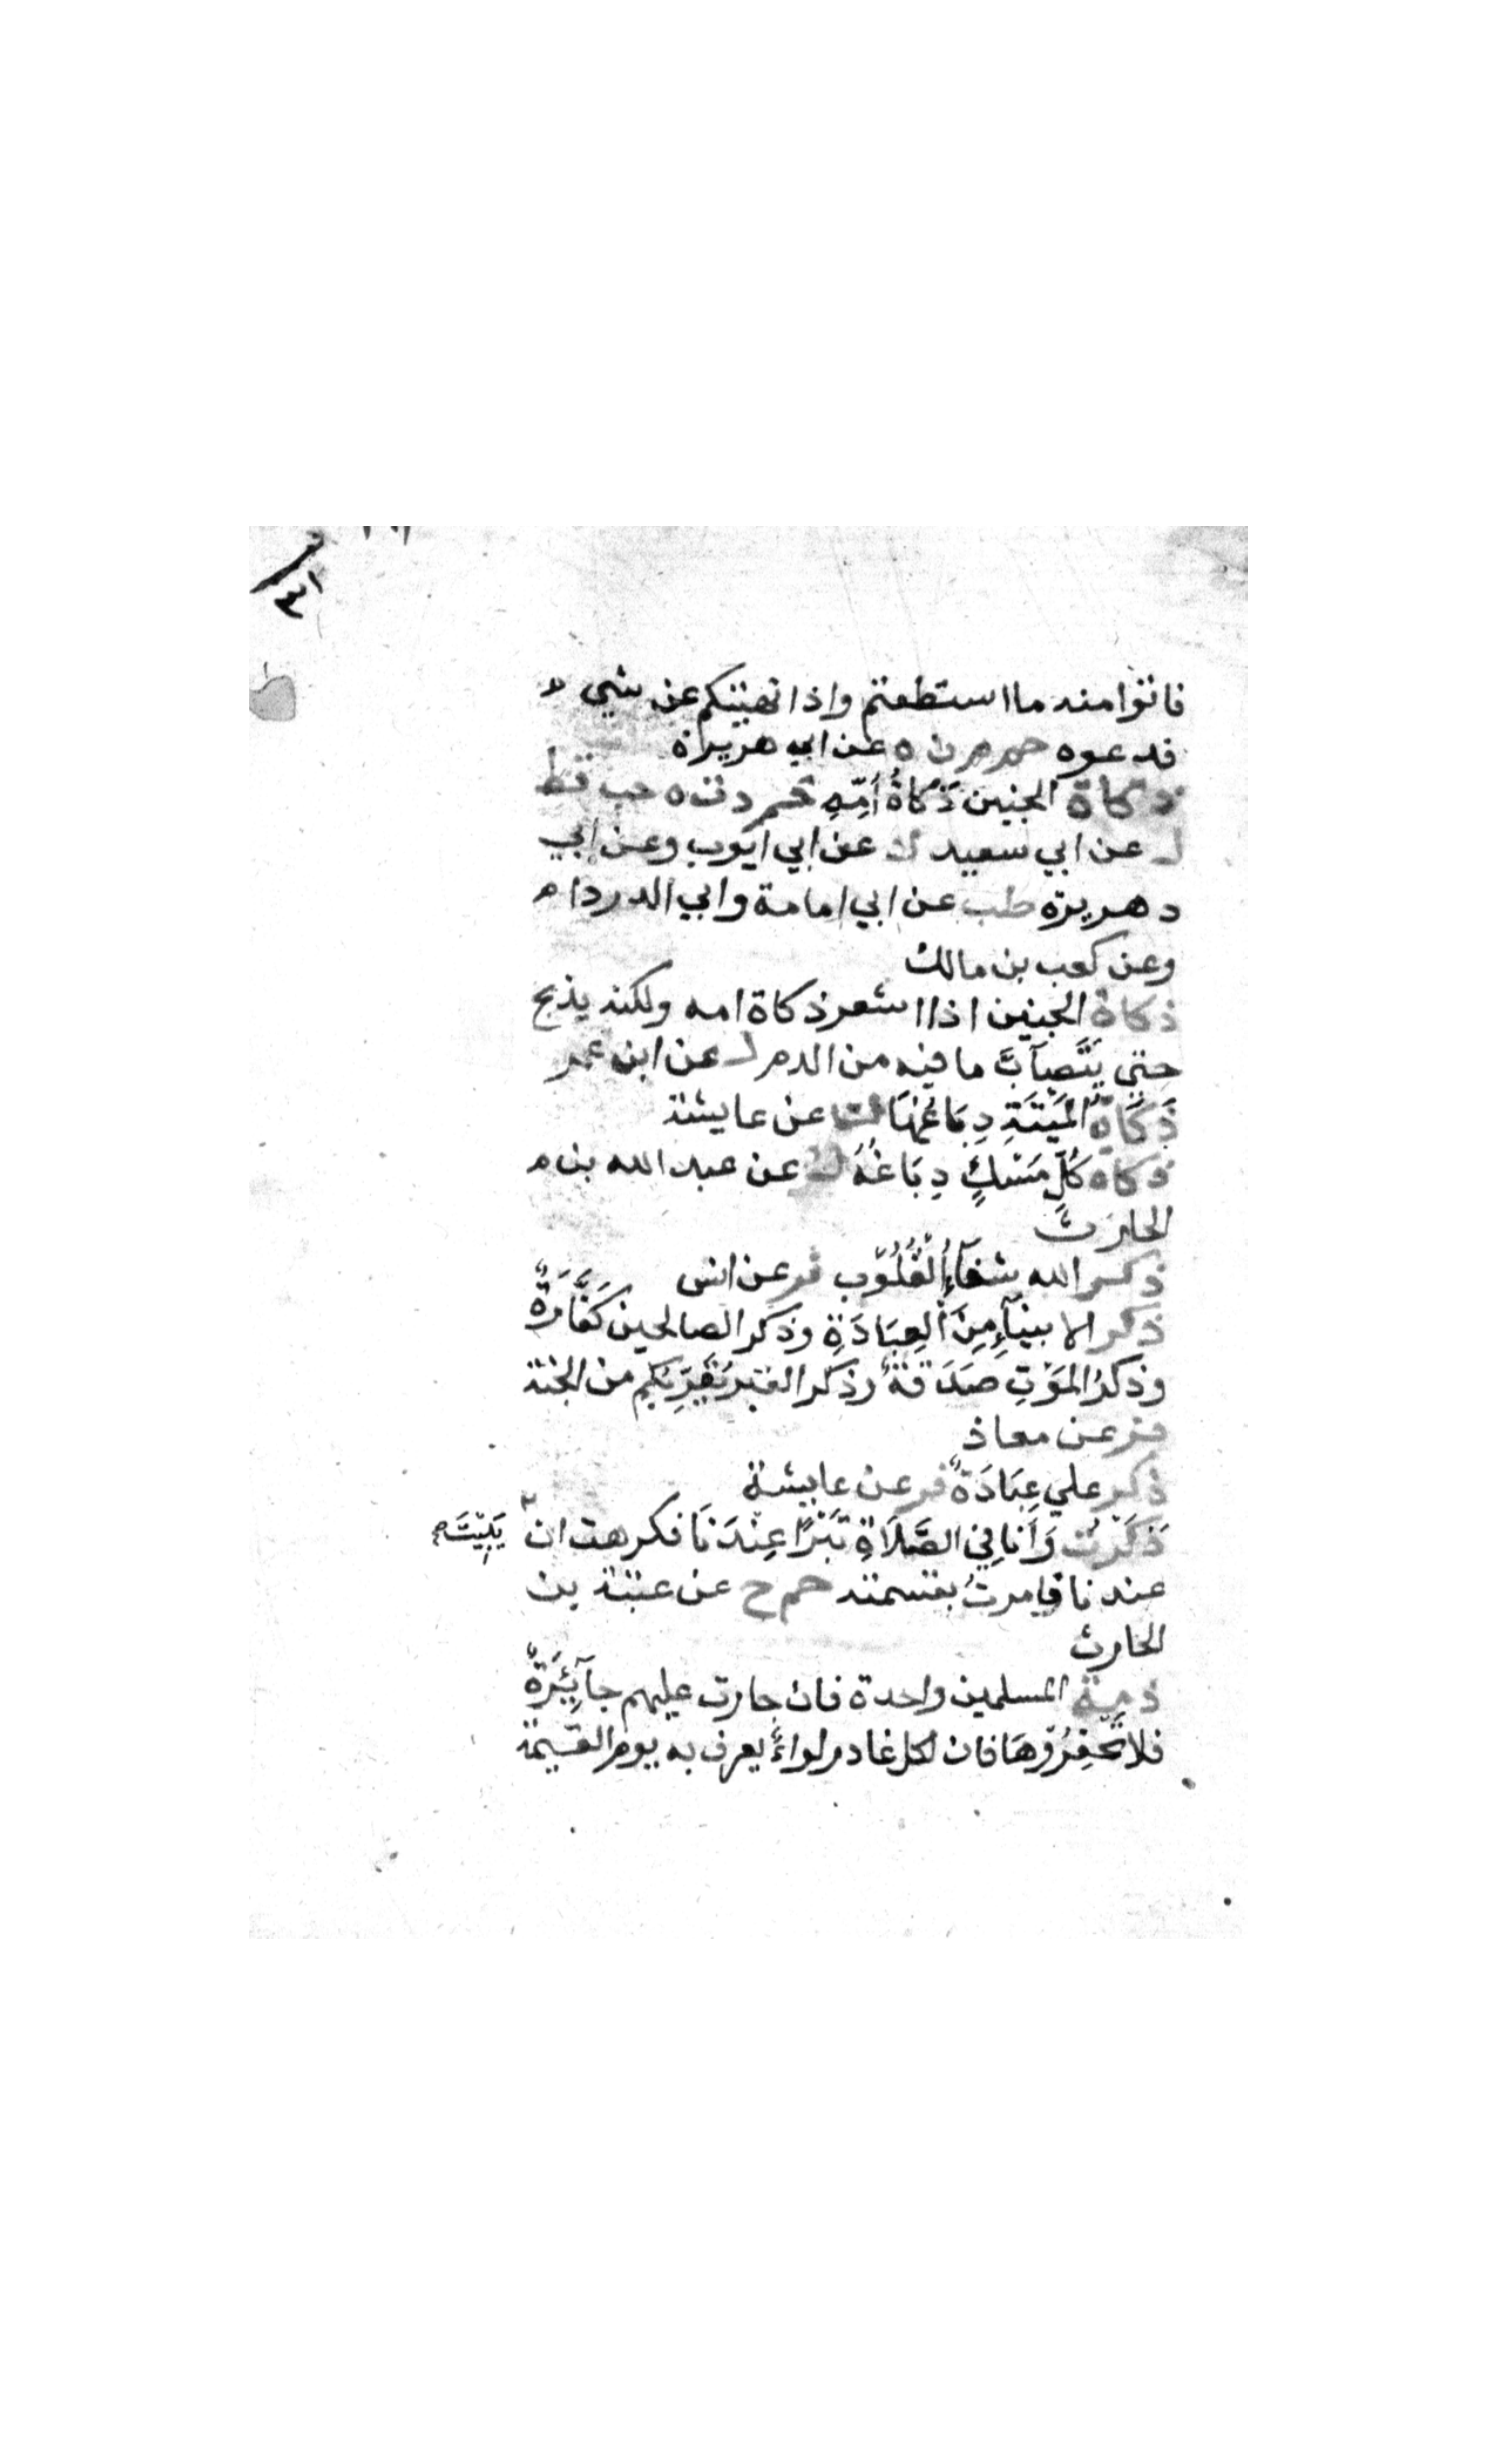 فاتوا منه ما استطعتم واذا نهيتكم عن شي
فدعوه حم م ن ه عن ابي هريرة
ذكاة الجنين ذَكَاةُ أُمِّهِ حم د ت ه حب قط
ك عن ابي سعيد ك عن ابي ايوب وعن ابي
د هريرة طب عن ابي امامة وابي الدرداء
وعن كعب بن مالك
ذكاة الجنين اذا اشعر ذكاة امه ولكنه يذبح
حتي يَتَّصَابَّ ما فيه من الدم ك عن ابن عمر
ذَكَاةُ المَيْتَةِ دِبَاغُهَا ن عن عايشة
ذكاة كُلِّ مَسْكٍ دِبَاغُهُ ك عن عبد الله بن
الحارث
ذكر الله شفآءُ الْقُلُوْبِ فر عن انس
ذكر الانبيآءِ مِنَ الْعِبَادَةِ وذكر الصالحين كَفَّارَةٌ
وذكرُ المَوْتِ صَدَقَةٌ وذكر القبر يُقَرِّبُكم من الجنة
فر عن معاذ
ذكر علي عِبَادَةٌ فر عن عايشة
ذَكَرْتُ وَأَنَا فِي الصَّلَاةِ تِبْرًا عِنْدَنَا فكرهت ان يَبِيْتَ
عندنا فامرتُ بقسمته حم خ عن عقبة بن
الحارث
ذمة المسلمين واحدة فان جارت عليهم جآئِرَةٌ
فلا تُخْفِرُوْهَا فان لكل غادر لواءً يعرف به يوم القيمة